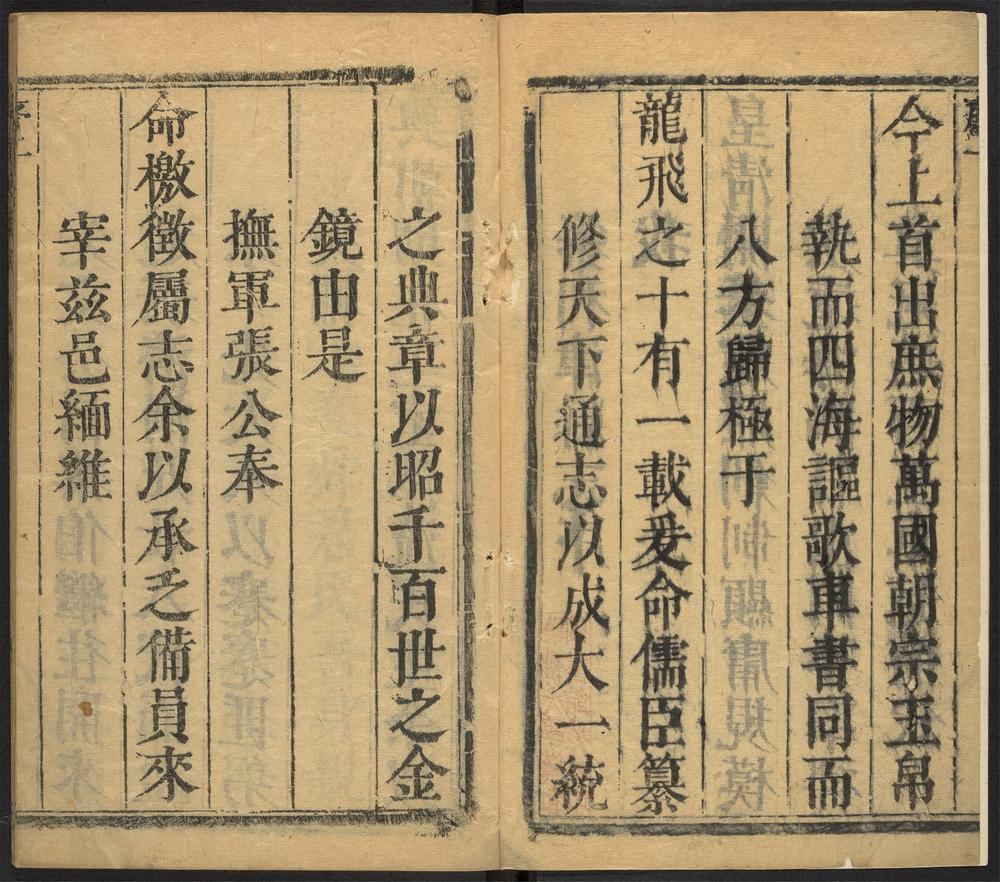 今上首出庶物萬國朝宗玉帛
執而四海謳歌車書同而
八方歸極于
龍飛之十有一載爰命儒臣纂
修天下通志以成大一統
之典章以昭千百世之金
鏡由是
撫軍張公奉
命檄徵屬志余以承乏備員來
宰兹邑緬維